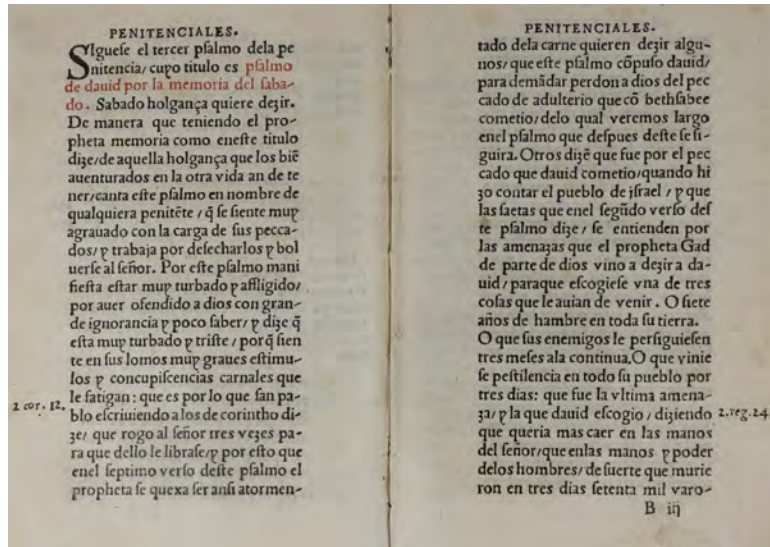 PENITENCIALES.
SIguese el tercer psalmo dela pe
nitencia/ cuyo titulo es psalmo
de dauid por la memoria del saba-
do. Sabado holgança quiere dezir.
De manera que teniendo el pro-
pheta memoria como eneste titulo
dize/de aquella holgança que los biē
auenturados en la otra vida an de te
ner/canta este psalmo en nombre de
qualquiera penitēte / q̄ se siente muy
agrauado con la carga de sus pecca-
dos/ y trabaja por desecharlos y bol
uerse al señor. Por este psalmo mani
fiesta estar muy turbado y affligido/
por auer ofendido a dios con gran-
de ignorancia y poco saber/ y dize q̄
esta muy turbado y triste / porq̄ sien
te en sus lomos muy graues estimu-
los y concupiscencias carnales que
le fatigan : que es por lo que san pa-
2 cor. 12.
blo escriuiendo a los de corintho di-
ze/ que rogo al señor tres vezes pa-
ra que dello le librase/y por esto que
enel septimo verso deste psalmo el
propheta se quexa ser ansi atormen-
PENITENCIALES.
tado dela carne quieren dezir algu-
nos/ que este psalmo cōpuso dauid/
para demādar perdon a dios del pec
cado de adulterio que cō bethsabee
cometio/delo qual veremos largo
enel psalmo que despues deste se si-
guira. Otros dizē que fue por el pec
cado que dauid cometio/quando hi
zo contar el pueblo de jsrael / y que
las saetas que enel segūdo verso des
te psalmo dize / se entienden por
las amenazas que el propheta Gad
de parte de dios vino a dezir a da-
uid/ paraque escogiese vna de tres
cosas que le auian de venir . O siete
años de hambre en toda su tierra.
O que sus enemigos le persiguiesen
tres meses ala continua.O que vinie
se pestilencia en todo su pueblo por
tres dias: que fue la vltima amena-
za/ y la que dauid escogio / diziendo
2.reg.24
que queria mas caer en las manos
del señor/que enlas manos y poder
delos hombres/ de suerte que murie
ron en tres dias setenta mil varo-
B iij